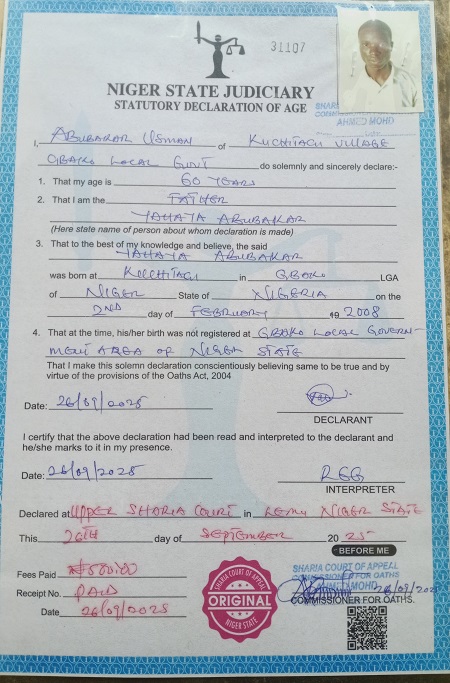 31107
NIGER STATE JUDICIARY
STATUTORY DECLARATION OF AGE
SHARIA
COMM
AHMED MOHD
I, ABUBAKAR USMAN of KUCHITAGI VILLAGE
GBAKO LOCAL GVNT do solemnly and sincerely declare:-
1. That my age is 60 YEARS
2. That I am the FATHER
YAHAYA ABUBAKAR
(Here state name of person about whom declaration is made)
3. That to the best of my knowledge and believe, the said
YAHAYA ABUBAKAR
was born at KUCHITAGI in GBAKO LGA
of NIGER State of NIGERIA on the
2ND day of FEBRUARY 19 2008
4. That at the time, his/her birth was not registered at GBAKO LOCAL GOVERN-
MENT AREA OF NIGER STATE
That I make this solemn declaration conscientiously believing same to be true and by
virtue of the provisions of the Oaths Act, 2004
Date: 26/09/2025
DECLARANT
I certify that the above declaration had been read and interpreted to the declarant and
he/she marks to it in my presence.
Date: 26/09/2025 REG
INTERPRETER
Declared at UPPER SHARIA COURT in LEMU NIGER STATE
This 26TH day of SEPTEMBER 20 25
BEFORE ME
Fees Paid
Receipt No. PAID
Date 26/09/2025
SHARIA COURT OF APPEAL
ORIGINAL
NIGER STATE
SHARIA COURT OF APPEAL
COMMISSIONER FOR OATHS
MOHD
26/09/2025
COMMISSIONER FOR OATHS.